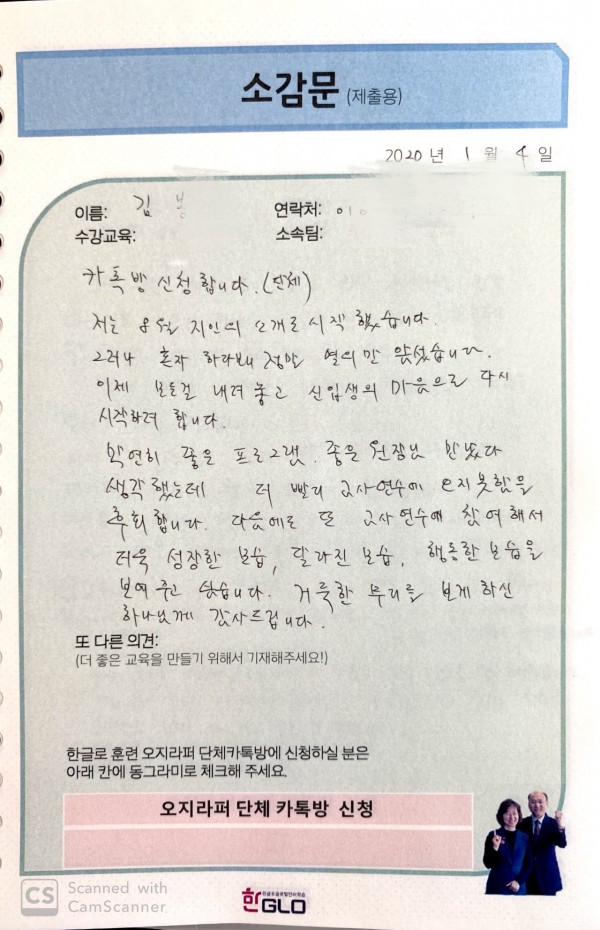 소감문 (제출용)
2020 년 1 월 4 일
이름: 김 봉
연락처: 010
수강교육:
소속팀:
카톡방 신청합니다. (단체)
저는 8월 지인의 소개로 시작 했습니다.
그러나 혼자 하다보니 정말 열의만 앞섰습니다.
이제 모든걸 내려놓고 신입생의 마음으로 다시
시작하려 합니다.
막연히 좋은 프로그램. 좋은 원장님 만났다
생각했는데 더 빨리 교사연수에 오지못함을
후회합니다. 다음에도 또 교사연수에 참여해서
더욱 성장한 모습, 달라진 모습, 행동한 모습을
보여주고 싶습니다. 거룩한 무리를 보게 하신
하나님께 감사드립니다.
또 다른 의견:
(더 좋은 교육을 만들기 위해서 기재해주세요!)
한글로 훈련 오지라퍼 단체카톡방에 신청하실 분은
아래 칸에 동그라미로 체크해 주세요.
오지라퍼 단체 카톡방 신청
CS Scanned with
CamScanner
한GLO